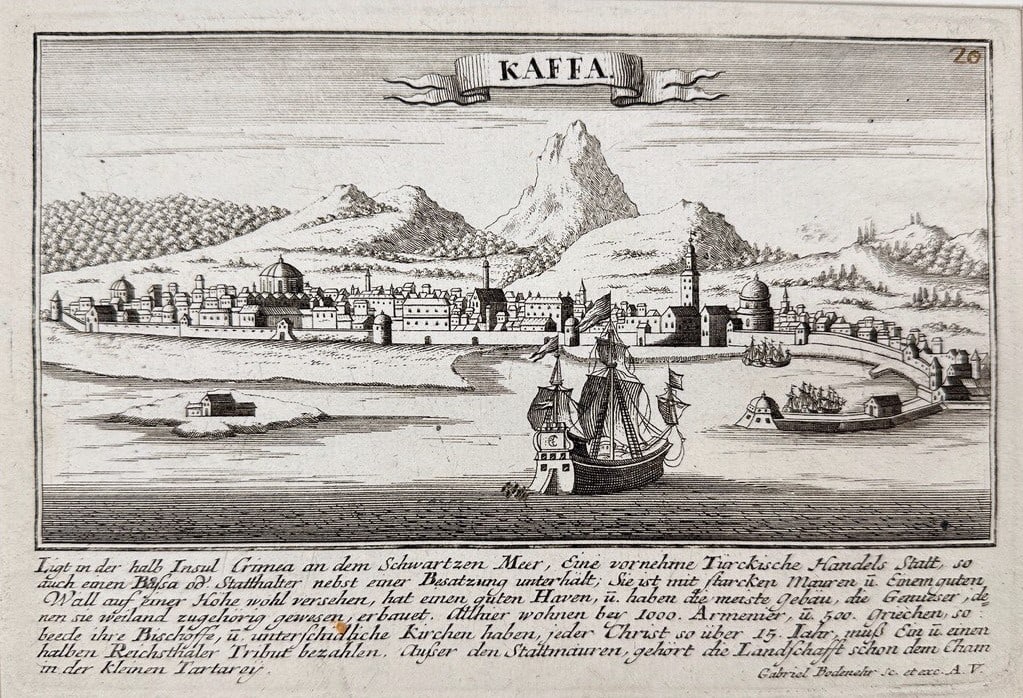 KAFFA.
20
Ligt in der halb Insul Crimea an dem Schwartzen Meer, Eine vornehme Türckische Handels Statt, so
auch einen Bassa od Statthalter nebst einer Besatzung unterhält; Sie ist mit starcken Mauren ü. Einem guten
Wall auf einer Höhe wohl versehen, hat einen guten Haven, ü. haben die meiste Gebäu, die Genueser, de,
nen sie weiland zugehörig gewesen, erbauet. Allhier wohnen ber 1000. Armenier, ü. 500. Griechen, so
beede ihre Bischoffe, ü. unterschidliche Kirchen haben, jeder Christ so über 15. Jahr, muß Ein ü. einen
halben Reichsthaler Tribut bezahlen. Außer den Stattmäuren, gehört die Landschafft schon dem Cham
in der kleinen Tartarey.
Gabriel Bodenehr sc. et exc. A. V.